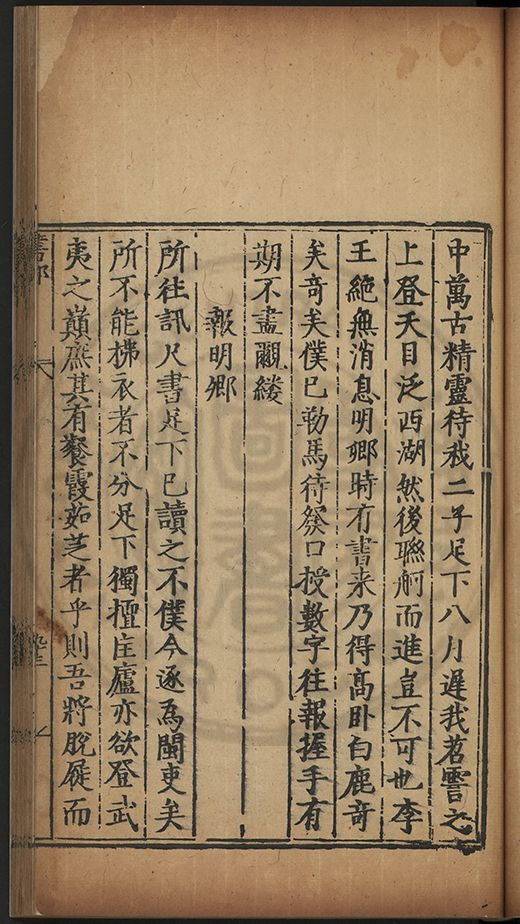 中萬古精靈待我二子足下八月遲我苕霅之
上登天目泛西湖然後聯舸而進豈不可也李
王絶無消息明卿時有書来乃得髙卧白鹿竒
矣竒矣僕已勒馬待發口授數字往報握手有
期不盡覼縷
報明卿
所往訊尺書足下已讀之不僕今逐為閩吏矣
所不能拂衣者不分足下獨擅匡廬亦欲登武
夷之巔庶其有餐霞茹芝者乎則吾将脫屣而